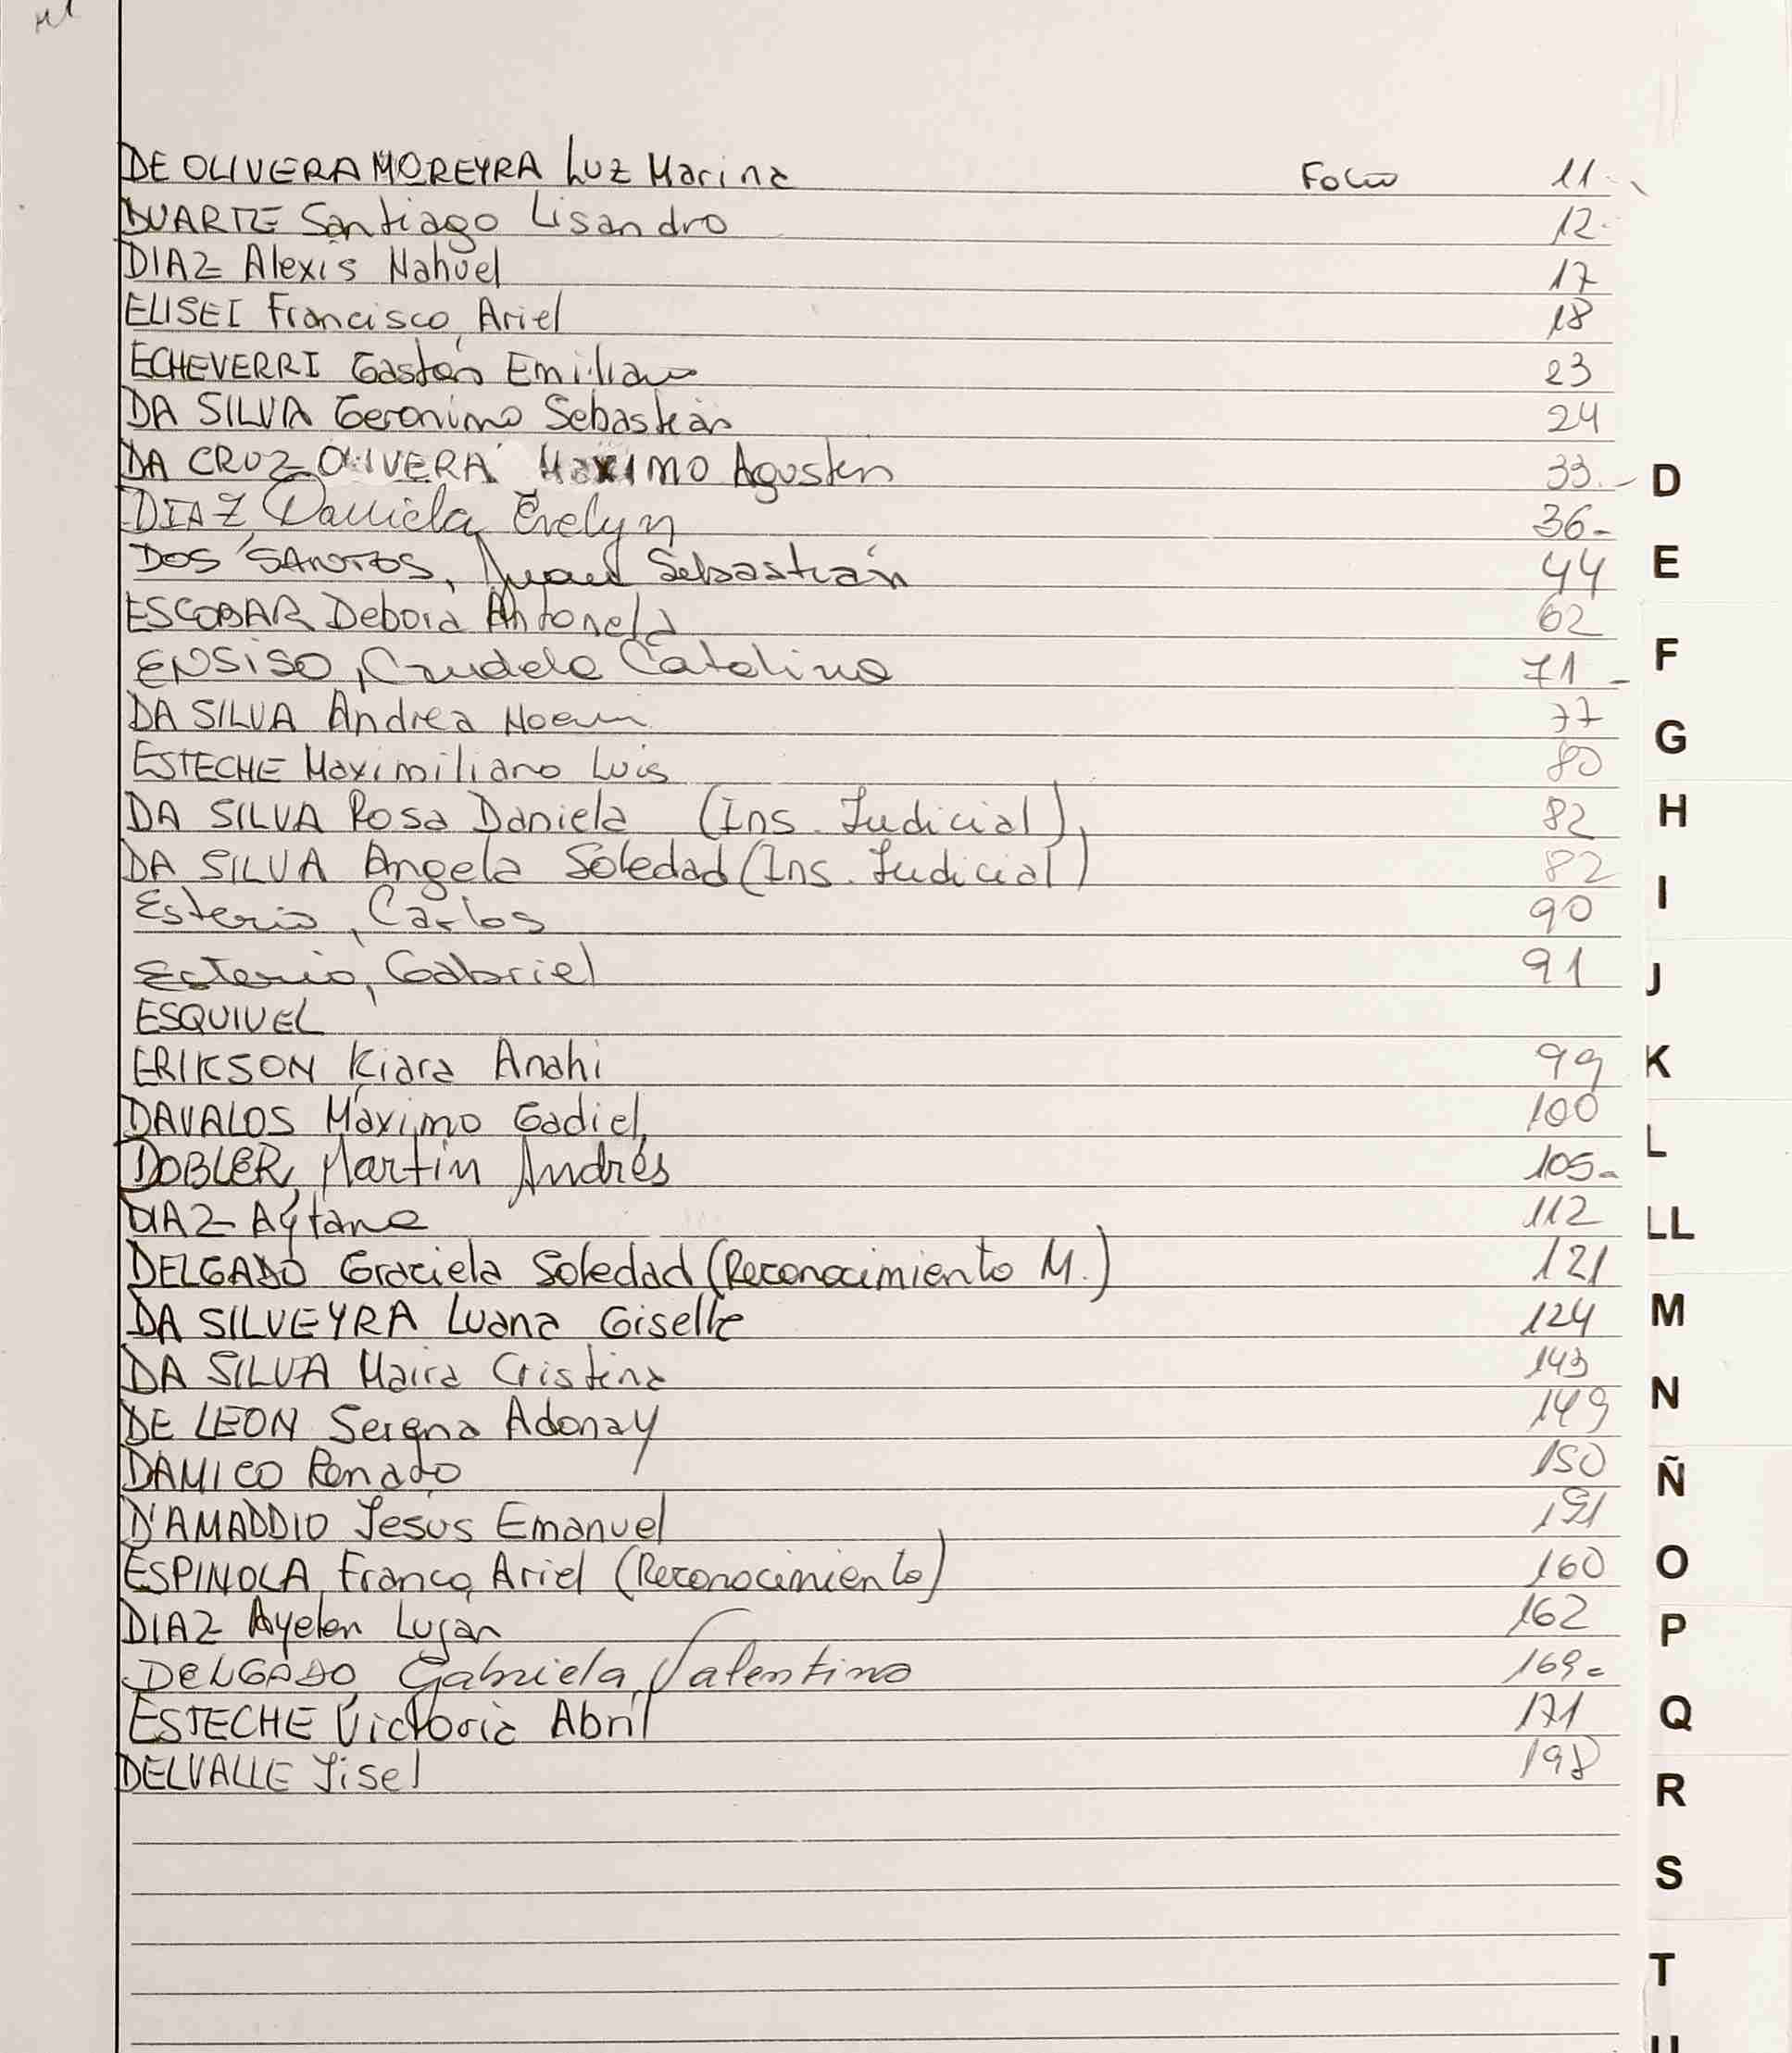 DE OLIVERA MOREYRA Luz Marina Folio 11
DUARTE Santiago Lisandro 12
DIAZ Alexis Nahuel 17
ELISEI Francisco Ariel 18
ECHEVERRI Gastón Emiliano 23
DA SILVA Geronimo Sebastián 24
DA CRUZ OLIVERA MaXIMO Agustin 33
DIAZ Daniela Evelyn 36
DOS SANTOS, Juan Sebastián 44
ESCOBAR Debora Antonela 62
ENSiSO, Catalina 71
DA SILVA Andrea Noemi 77
ESTECHE Maximiliano Luis 80
DA SILVA Rosa Daniela (Ins. Judicial) 82
DA SILVA Angela Soledad (Ins. Judicial) 82
Esterio, Carlos 90
Esterio, Gabriel 91
ESQUIVEL
ERIKSON Kiara Anahi 99
DAVALOS Máximo Gadiel 100
DOBLER, Martín Andrés 105
DIAZ Aytana 112
DELGADO Graciela Soledad (Reconocimiento M.) 121
DA SILVEYRA Luana Giselle 124
DA SILVA Maira Cristina 143
DE LEON Serena Adonay 149
DAMICO Renado 150
D'AMADDIO Jesús Emanuel 191
ESPINOLA, Franco Ariel (Reconocimiento) 160
DIAZ Ayelen Lujan 162
DELGADO Gabriela Valentina 169
ESTECHE Victoria Abril 171
DELVALLE Jisel 198
D
E
F
G
H
I
J
K
L
LL
M
N
Ñ
O
P
Q
R
S
T